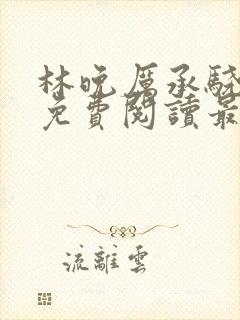 林晚厲承駿
免費閱讀最
流離雲